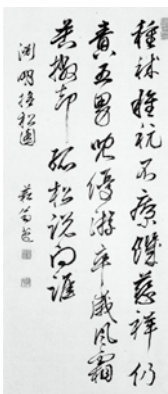 種秫種秔不療饑慈祥仍
責五男兒優游卒歲風霜
苦撫却孤松説向誰
淵明撫松圖